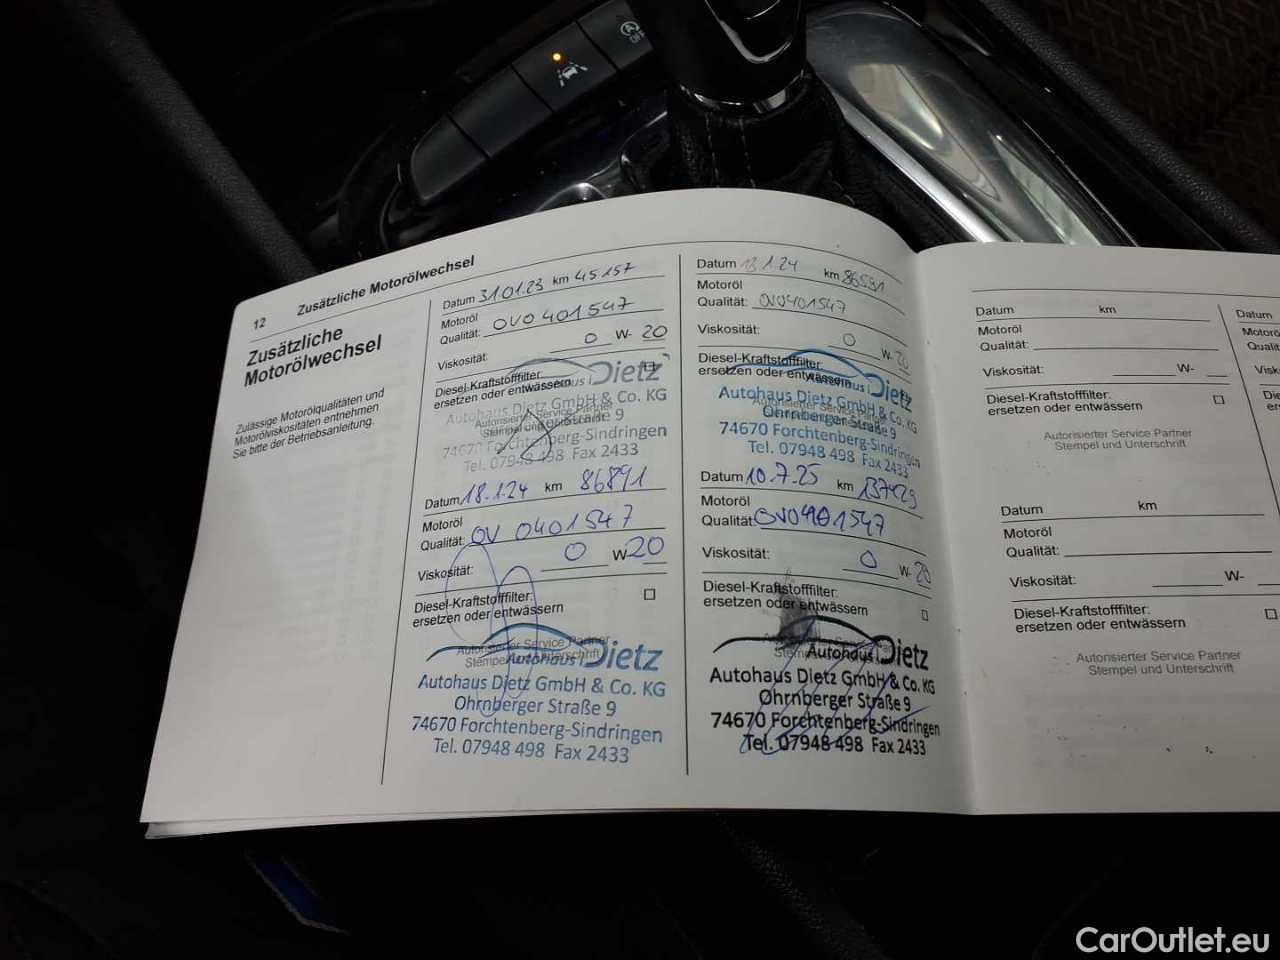 OFF
12 Zusätzliche Motorölwechsel
Zusätzliche
Motorölwechsel
Zulässige Motorölqualitäten und
Motorölviskositäten entnehmen
Sie bitte der Betriebsanleitung.
Datum 31.01.23 km 45157
Motoröl
Qualität: OVO401547
Viskosität: 0 W- 20
Diesel-Kraftstofffilter:
ersetzen oder entwässern
Autohaus Dietz
Autohaus Dietz GmbH & Co. KG
Autorisierter Service Partner
Stempel und Unterschrift
Ohrnberger Straße 9
74670 Forchtenberg-Sindringen
Tel. 07948 498 Fax 2433
Datum 18.1.24 km 86891
Motoröl
Qualität: OV 0401547
Viskosität: 0 W- 20
Diesel-Kraftstofffilter:
ersetzen oder entwässern
Autorisierter Service Partner
Stempel und Unterschrift
Autohaus Dietz
Autohaus Dietz GmbH & Co. KG
Ohrnberger Straße 9
74670 Forchtenberg-Sindringen
Tel. 07948 498 Fax 2433
Datum 18.1.24 km
Motoröl
Qualität: OVO401547
Viskosität: 0 W- 20
Diesel-Kraftstofffilter:
ersetzen oder entwässern
Autohaus Dietz
Autohaus Dietz GmbH & Co. KG
Autorisierter Service Partner
Ohrnberger Straße 9
74670 Forchtenberg-Sindringen
Tel. 07948 498 Fax 2433
Datum 10.7.25 km 137429
Motoröl
Qualität: OVO401547
Viskosität: 0 W- 20
Diesel-Kraftstofffilter:
ersetzen oder entwässern
Autohaus Dietz
Autohaus Dietz GmbH & Co. KG
Ohrnberger Straße 9
74670 Forchtenberg-Sindringen
Tel. 07948 498 Fax 2433
Datum km
Motoröl
Qualität:
Viskosität: W-
Diesel-Kraftstofffilter:
ersetzen oder entwässern
Autorisierter Service Partner
Stempel und Unterschrift
Datum km
Motoröl
Qualität:
Viskosität: W-
Diesel-Kraftstofffilter:
ersetzen oder entwässern
Autorisierter Service Partner
Stempel und Unterschrift
Datum
CarOutlet.eu